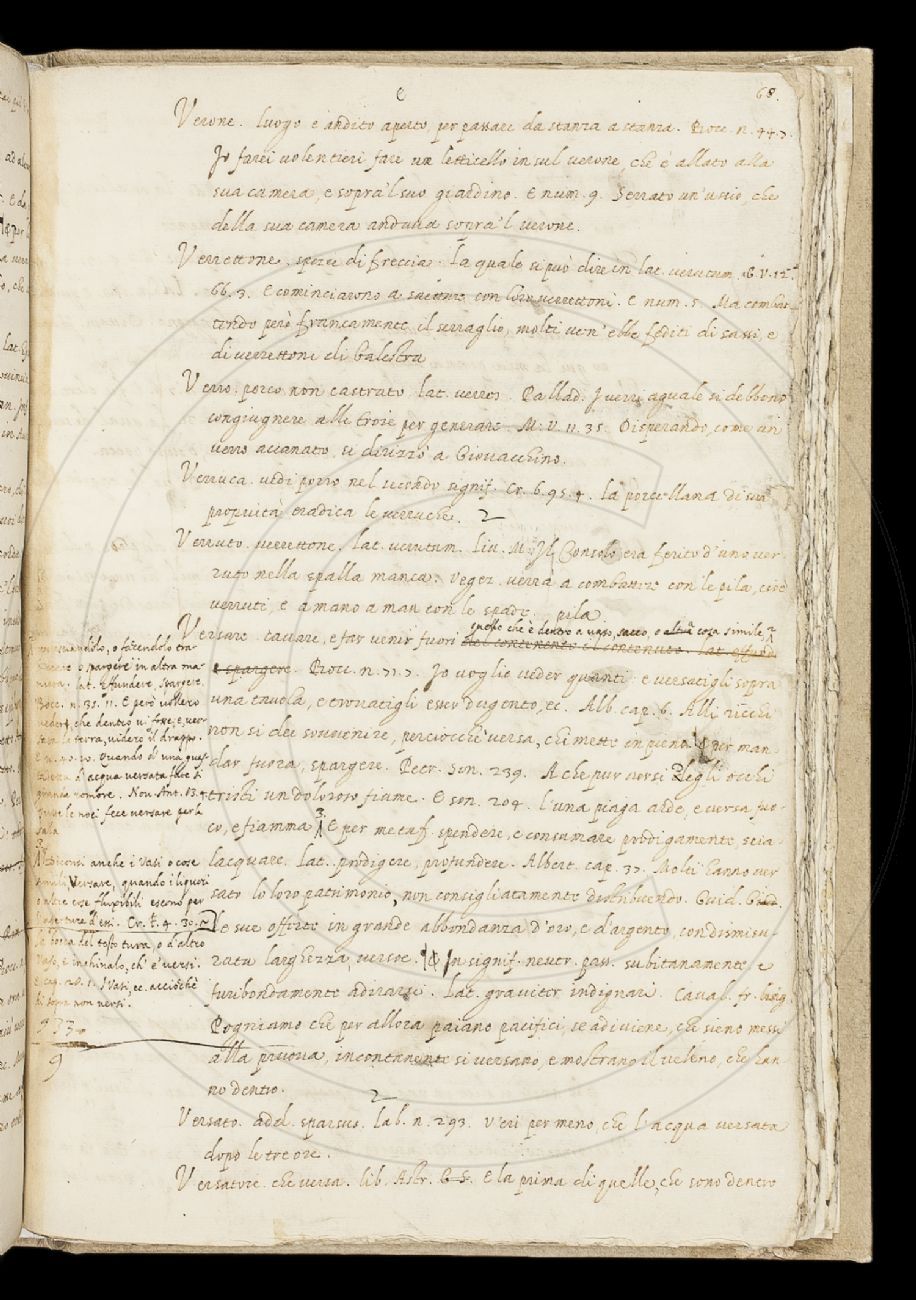 e
68.
Verone. luogo e andito aperto, per passare da stanza a stanza. Bocc. n. 44. 7.
Jo farei volentieri fare un letticello in sul verone, che è allato alla
sua camera, e sopra 'l suo giardino. E num. 9. Serrato un'uscio, che
della sua camera andava sopra 'l verone.
Verrettone. spezie di freccia. la quale si può dire in lat. verutum. G. V. 12.
66. 3. E cominciarono a saettare con loro verrettoni. E num. 5. Ma combat-
tendo però francamente il serraglio, molti ven' ebbe fediti di sassi, e
di verrettoni di balestra
Verro. porco non castrato. lat. verres. Pallad. J verri aguale si debbono
congiugnere alle troie per generare. M. V. 11. 35. Disperando, come un
verro accanato, si dirizzò a Giovacchino.
Verruca. vedi porro nel secondo signif. Cr. 6. 95. 4. la porcellana di sua
propietà eradica le verruche. 2
Verruto. verrettone. lat. verutum. Liv. M. Jl Consolo era ferito d'uno ver-
ruto nella spalla manca. Vegez. verrà a combattere con le pila, cioè
verruti, e a mano a man con le spade. pila
quello che è dentro a vaso, sacco, o altra cosa simile,
Versare. cavare, e far venir fuori del continente il contenuto. lat. effund
e spargere. Bocc. n. 71. 7. Jo voglio veder quanti: e versatigli sopra
una tavola, e trovatigli esser dugento, ec. Alb. cap. 6. Alli ricchi
non si dee sovvenire, perciocchè versa, chi mette in piena. Per man-
dar fuora, spargere. Petr. Son. 239. A che pur versi Degli occhi
tristi un doloroso fiume. E son. 204. l'una piaga arde, e versa fuo-
co, e fiamma. E per metaf. spendere, e consumare prodigamente, scia-
lacquare. Lat. prodigere, profundere. Albert. cap. 37. Molti hanno ver
sato lo loro patrimonio, non consigliatamente distribuendo. Guid. Giud.
le sue offerte in grande abbondanza d'oro, e d'argento, con dismisu-
rata larghezza, versoe. In signif. neutr. pass. subitanamente, e
furibondamente adirarsi. Lat. graviter indignari. Caval. fr. ling.
Pogniamo che per allora paiano pacifici, se adiviene, che sieno messi
alla pruova, incontanente si versano, e mostrano il veleno, che han-
no dentro.
2
Versato. add. sparsus. lab. n. 293. Veri per meno, che l'acqua versata
dopo le tre ore.
Versatore. che versa. lib. Astr. E la prima di quelle, che sono dentro
rovesciandolo, o facendolo tra
o spargere in altra ma-
niera. lat. Effundere, spargere.
Bocc. n. 31. 11. E però
che dentro vi fosse, e ver
terra, videro il drappo.
Quando d'una
d'acqua versata fece sì
gran romore. Nov. Ant. 13. 4
le noci fece versare per la
sala
Diconsi anche i vasi o cose
simili Versare, quando i liquori
o altre cose flussibili escono per
l'apertura d'essi. Cr. 4. 30. 2
la bocca del testo tura, o d'altro
vaso, e inchinalo, ch' e' versi.
E cap. Vasi, ec. acciochè
di sopra non versi.
933
9